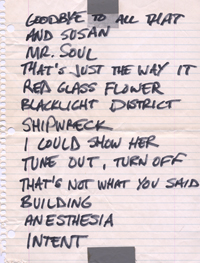 GOODBYE TO ALL THAT
AND SUSAN
MR. SOUL
THAT'S JUST THE WAY IT
RED GLASS FLOWER
BLACKLIGHT DISTRICT
SHIPWRECK
I COULD SHOW HER
TUNE OUT, TURN OFF
THAT'S NOT WHAT YOU SAID
BUILDING
ANESTHESIA
INTENT